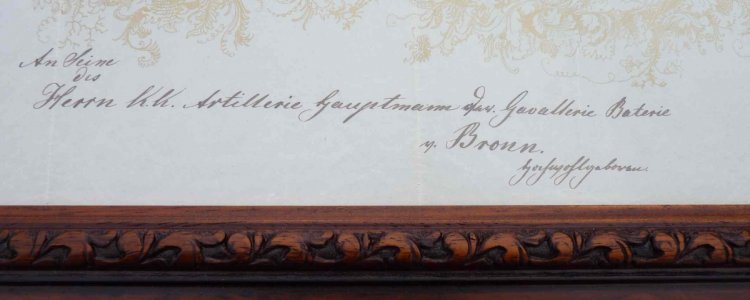 An Seine
des
Herrn k.k. Artillerie Hauptmann Cavallerie Baterie
v. Bronn.
Hochwohlgeboren.